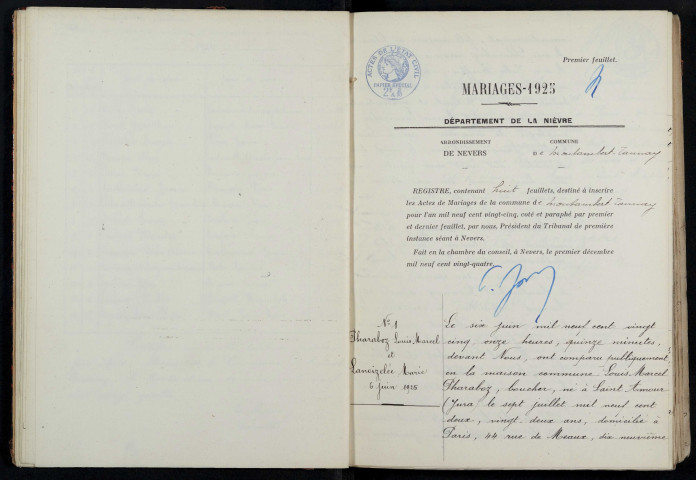 Premier feuillet.
ACTES DE L'ETAT CIVIL
MARIAGES-1925
DÉPARTEMENT DE LA NIÈVRE
ARRONDISSEMENT
DE NEVERS
COMMUNE
DE Montambert-Tannay
REGISTRE, contenant huit feuillets, destiné à inscrire
les Actes de Mariages de la commune de Montambert Tannay
pour l'an mil neuf cent vingt-cinq, coté et paraphé par premier
et dernier feuillet, par nous, Président du Tribunal de première
instance séant à Nevers.
Fait en la chambre du conseil, à Nevers, le premier décembre
mil neuf cent vingt-quatre.
N° 1
Tharaboz Louis Marcel
et
Lanoizelée Marie
6 Juin 1925
Le six juin mil neuf cent vingt
cinq onze heures, quinze minutes,
devant Nous, ont comparu publiquement
en la maison commune Louis Marcel
Tharaboz, boucher, né à Saint Amour
(Jura le sept juillet mil neuf cent
deux, vingt-deux ans, domicilié à
Paris, 44 rue de Meaux, dix neuvième